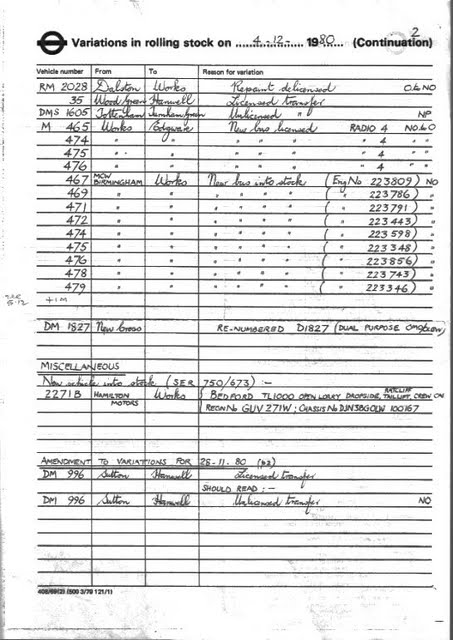 2
Variations in rolling stock on 4-12- 1980 (Continuation)
Vehicle number From To Reason for variation
RM 2028 Dalston Works Repaint delicensed O&NO
35 Wood Green Hanwell Licensed transfer
DMS 1605 Tottenham Turnham Green Unlicensed " NP
M 465 Works Edgware New bus licensed RADIO 4 NO&O
474 " " " " " " 4 " "
475 " " " " " " 4 " "
476 " " " " " " 4 " "
467 MCW BIRMINGHAM Works New bus into stock (Eng No 223809) NO
469 " " " " " " ( " 223786) "
471 " " " " " " ( " 223791) "
472 " " " " " " ( " 223443) "
474 " " " " " " ( " 223598) "
475 " " " " " " ( " 223348) "
476 " " " " " " ( " 223856) "
478 " " " " " " ( " 223743) "
479 " " " " " " ( " 223346) "
DM 1827 New Cross RE-NUMBERED D1827 (DUAL PURPOSE
MISCELLANEOUS
New vehicle into stock (SER 750/673) :-
2271B HAMILTON MOTORS Works BEDFORD TL1000 OPEN LORRY DROPSIDE, RATCLIFF TAILLIFT, CREW
REGN No GUV 271W ; CHASSIS No 100167
AMENDMENT TO VARIATIONS FOR 28-11-80 (p2)
DM 996 Sutton Hanwell Licensed transfer
SHOULD READ :-
DM 996 Sutton Hanwell Unlicensed transfer NO
408/69(2) (500 3/79 121/1)